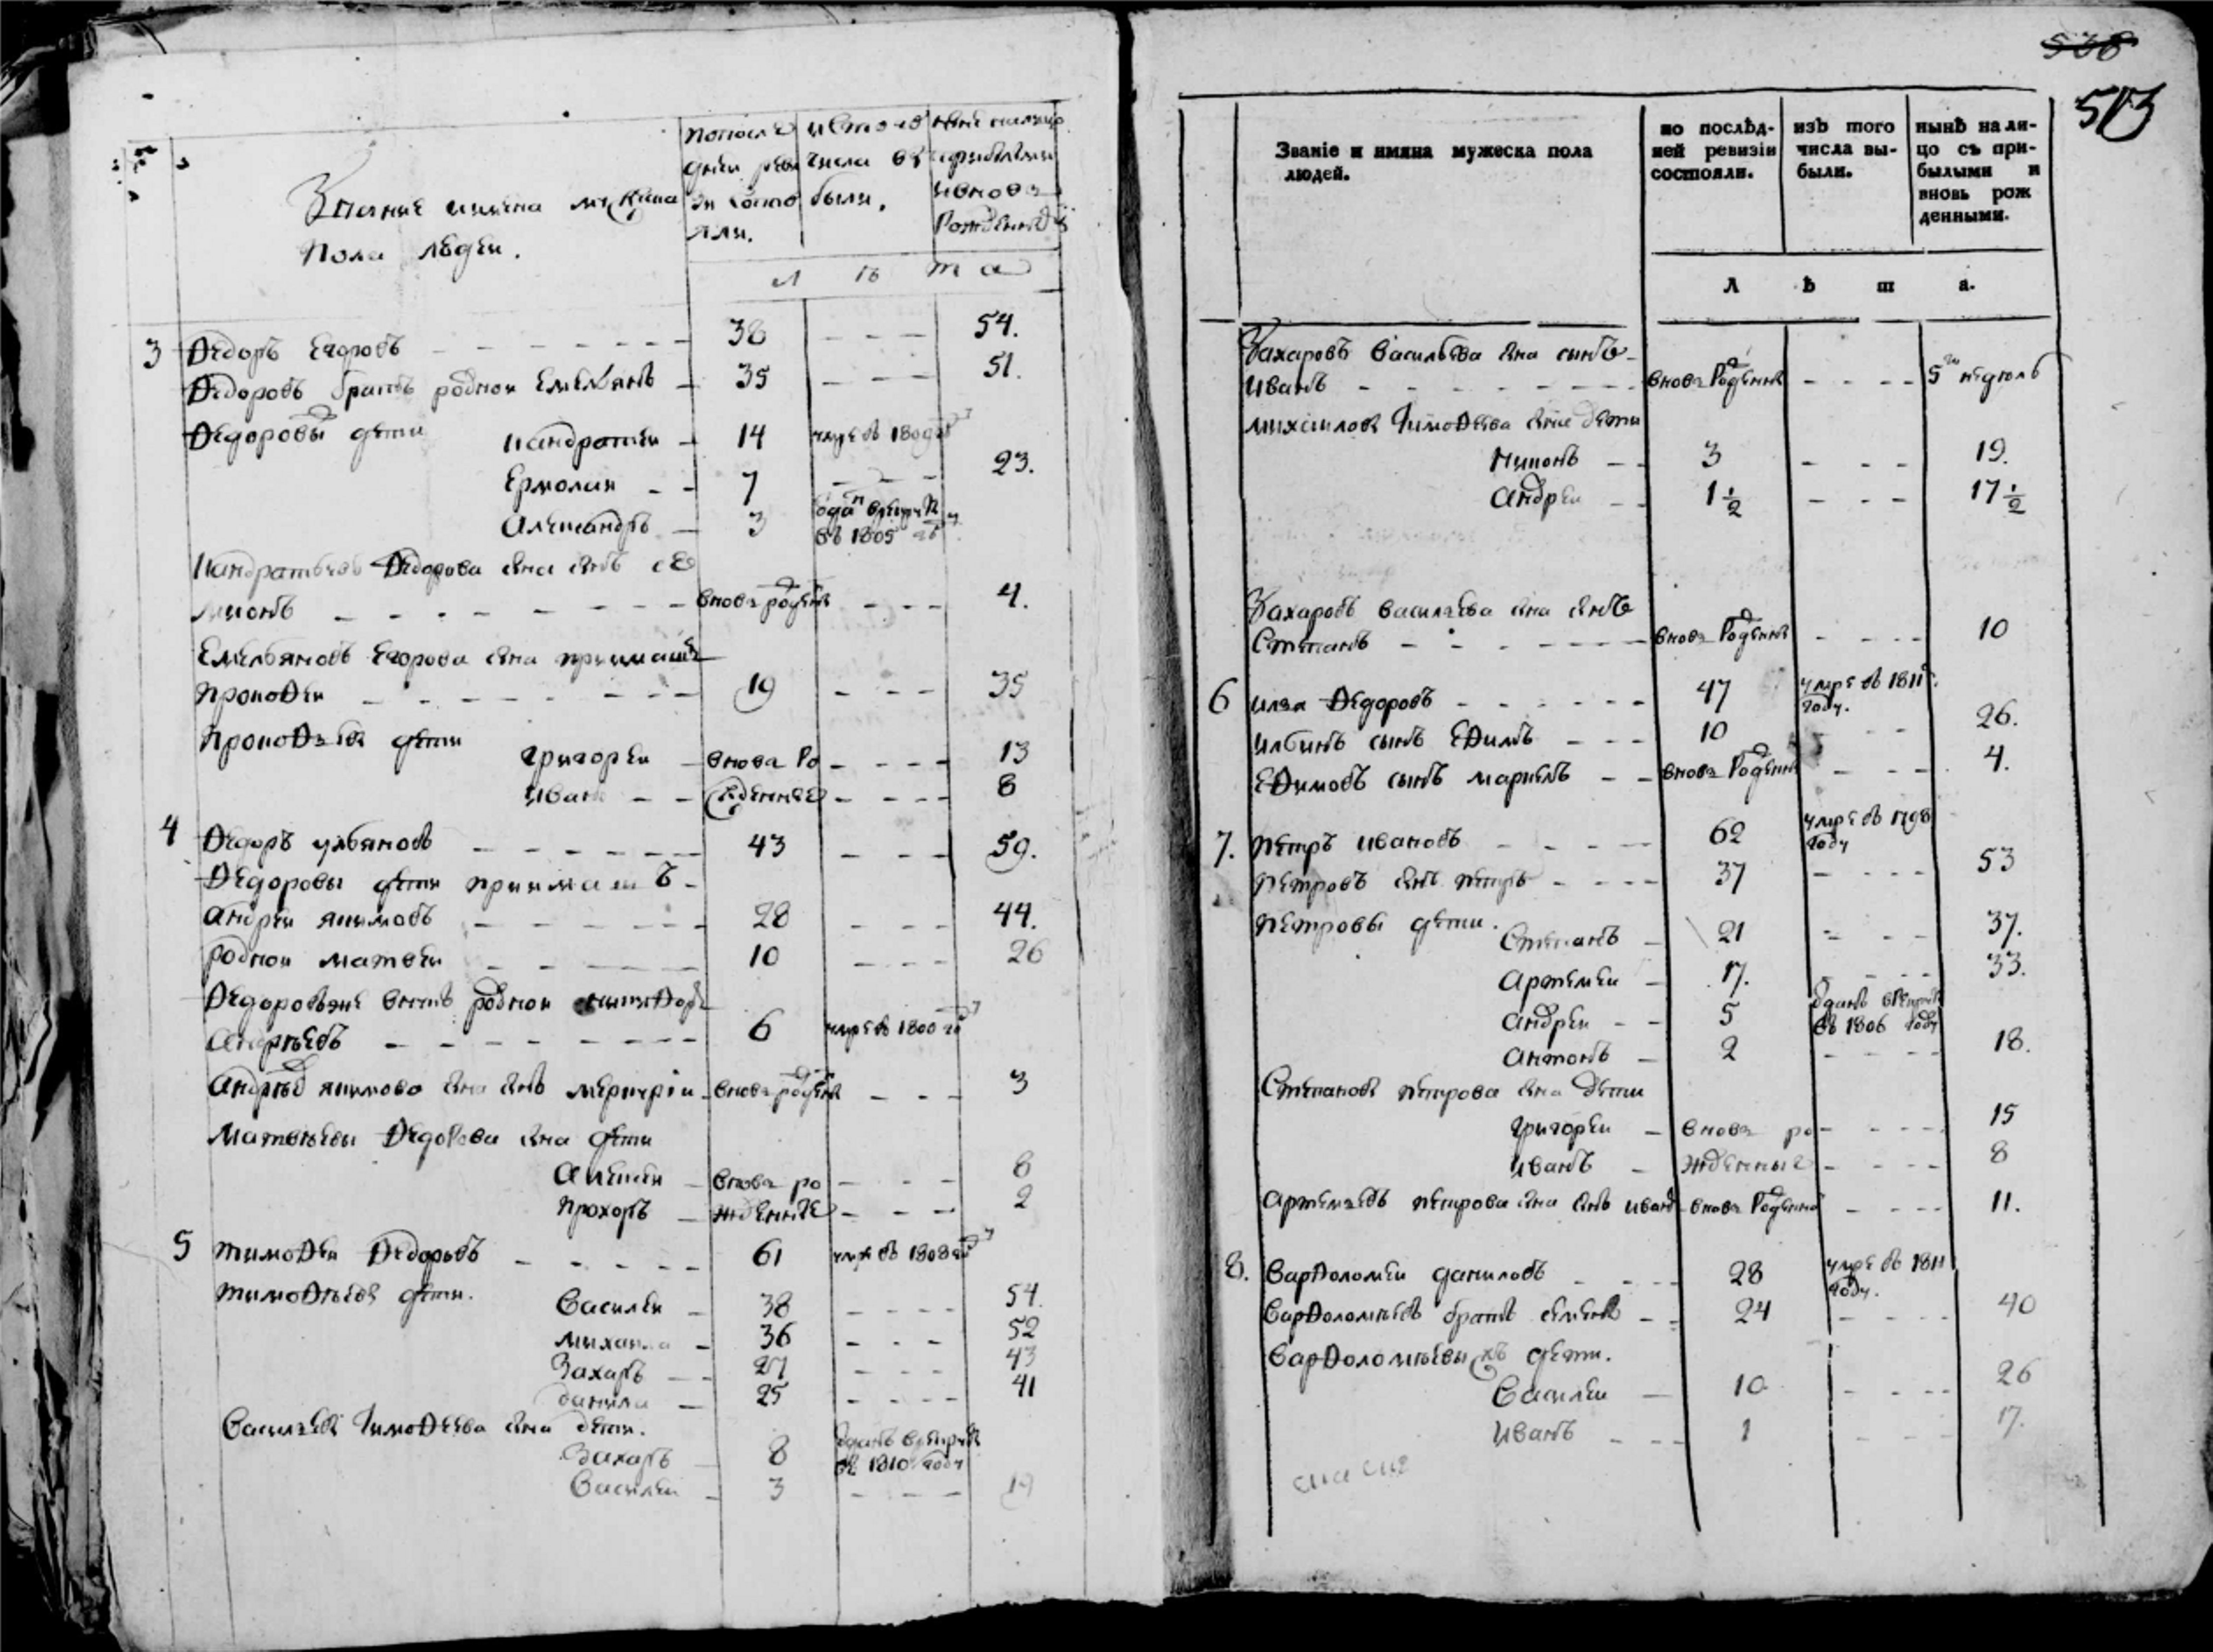 Звание имена мужска
пола людей.
по после
дней реви
зи состо
яли.
ис того
числа вы
были.
ныне налицо
с прибылыми
и вновь
рожденными
л ѣ т а
3 Ѳедоръ Егоровъ 38 54.
Ѳедоровъ братъ родной Емельянъ 35 51.
Ѳедоровы дети Кандратеи 14 умре въ 1809 году
Ермолаи 7 23.
Александръ 3 одан в рекруты въ 1805 году
Кандратьевъ Ѳедорова сына сынъ се
мионъ вновь рожденъ 4.
Емельяновъ Егорова сына приимашъ
Прокоѳеи 19 35
Прокоѳьевы дети
Григореи вновь ро 13
Иванъ жденные 8
4 Ѳедоръ ульяновъ 43 59.
Ѳедоровы дети приимашъ
Андреи якимовъ 28 44.
родной матвеи 10 26
Ѳедоровъ же внукъ родной
6 умре въ 1800 году
Андреева якимова сына сынъ меркуреи вновь рожденъ 3
Матвеевы Ѳедорова сына дети
Алексеи вновь ро 6
Прохоръ жденные 2
5 тимоѳеи Ѳедоровъ 61 умре въ 1808 году
тимоѳеевы дети.
Василеи 38 54.
михаила 36 52
Захаръ 27 43
данила 25 41
Васильевы тимоѳеева сына дети.
Захаръ 8 оданъ в рекруты въ 1810 году
Василеи 3 19
538
513
Званіе и имяна мужеска пола
людей.
по послѣд-
ней ревизіи
состояли.
изъ того
числа вы-
были.
нынѣ на ли-
цо съ при-
былыми и
вновь рож
денными.
Л ѣ т а.
Захаровъ васильева сына сынъ
Иванъ вновь рожденны 5ти недель
михаиловы тимоѳеева сына дети
Никонъ 3 19.
Андреи 1 1/2 17 1/2
Захаровъ васильева сына сынъ
Степанъ вновь рожденны 10
6 илья Ѳедоровъ 47 умре въ 1811 году.
ильинъ сынъ еѳимъ 10 26.
Еѳимовъ сынъ маркелъ вновь рожденны 4.
7. Петръ ивановъ 62 умре въ 1798 году
Петровъ сынъ петръ 37 53
петровы дети.
Степанъ 21 37.
Артемеи 17. 33.
Андреи 5 оданъ в рекруты въ 1806 году
Антонъ 2 18.
Степановы петрова сына дети
Григореи вновь ро 15
Иванъ жденные 8
Артемьевъ петрова сына сынъ иванъ вновь рожденны 11.
8. Варѳоломеи даниловъ 28 умре въ 1811 году.
Варѳоломеевъ братъ семенъ 24 40
Варѳоломеевы дети.
Василеи 10 26
Иванъ 1 17.